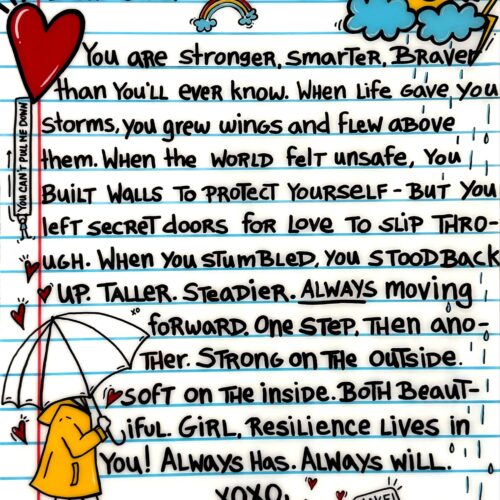 You are stronger, smarter, Braver
than You'll ever know. When Life gave you
storms, you grew wings and flew above
them. When the world felt unsafe, you
Built walls to protect yourself - But you
left secret doors for love to slip thro-
ugh. When you stumbled, you stood Back
up. Taller. Steadier. Always moving
xo
forward. One step, then ano-
ther. Strong on the outside.
soft on the inside. Both Beaut-
iful. Girl, Resilience lives in
You! Always Has. Always will.
XOXO,
YOU CAN'T PULL ME DOWN